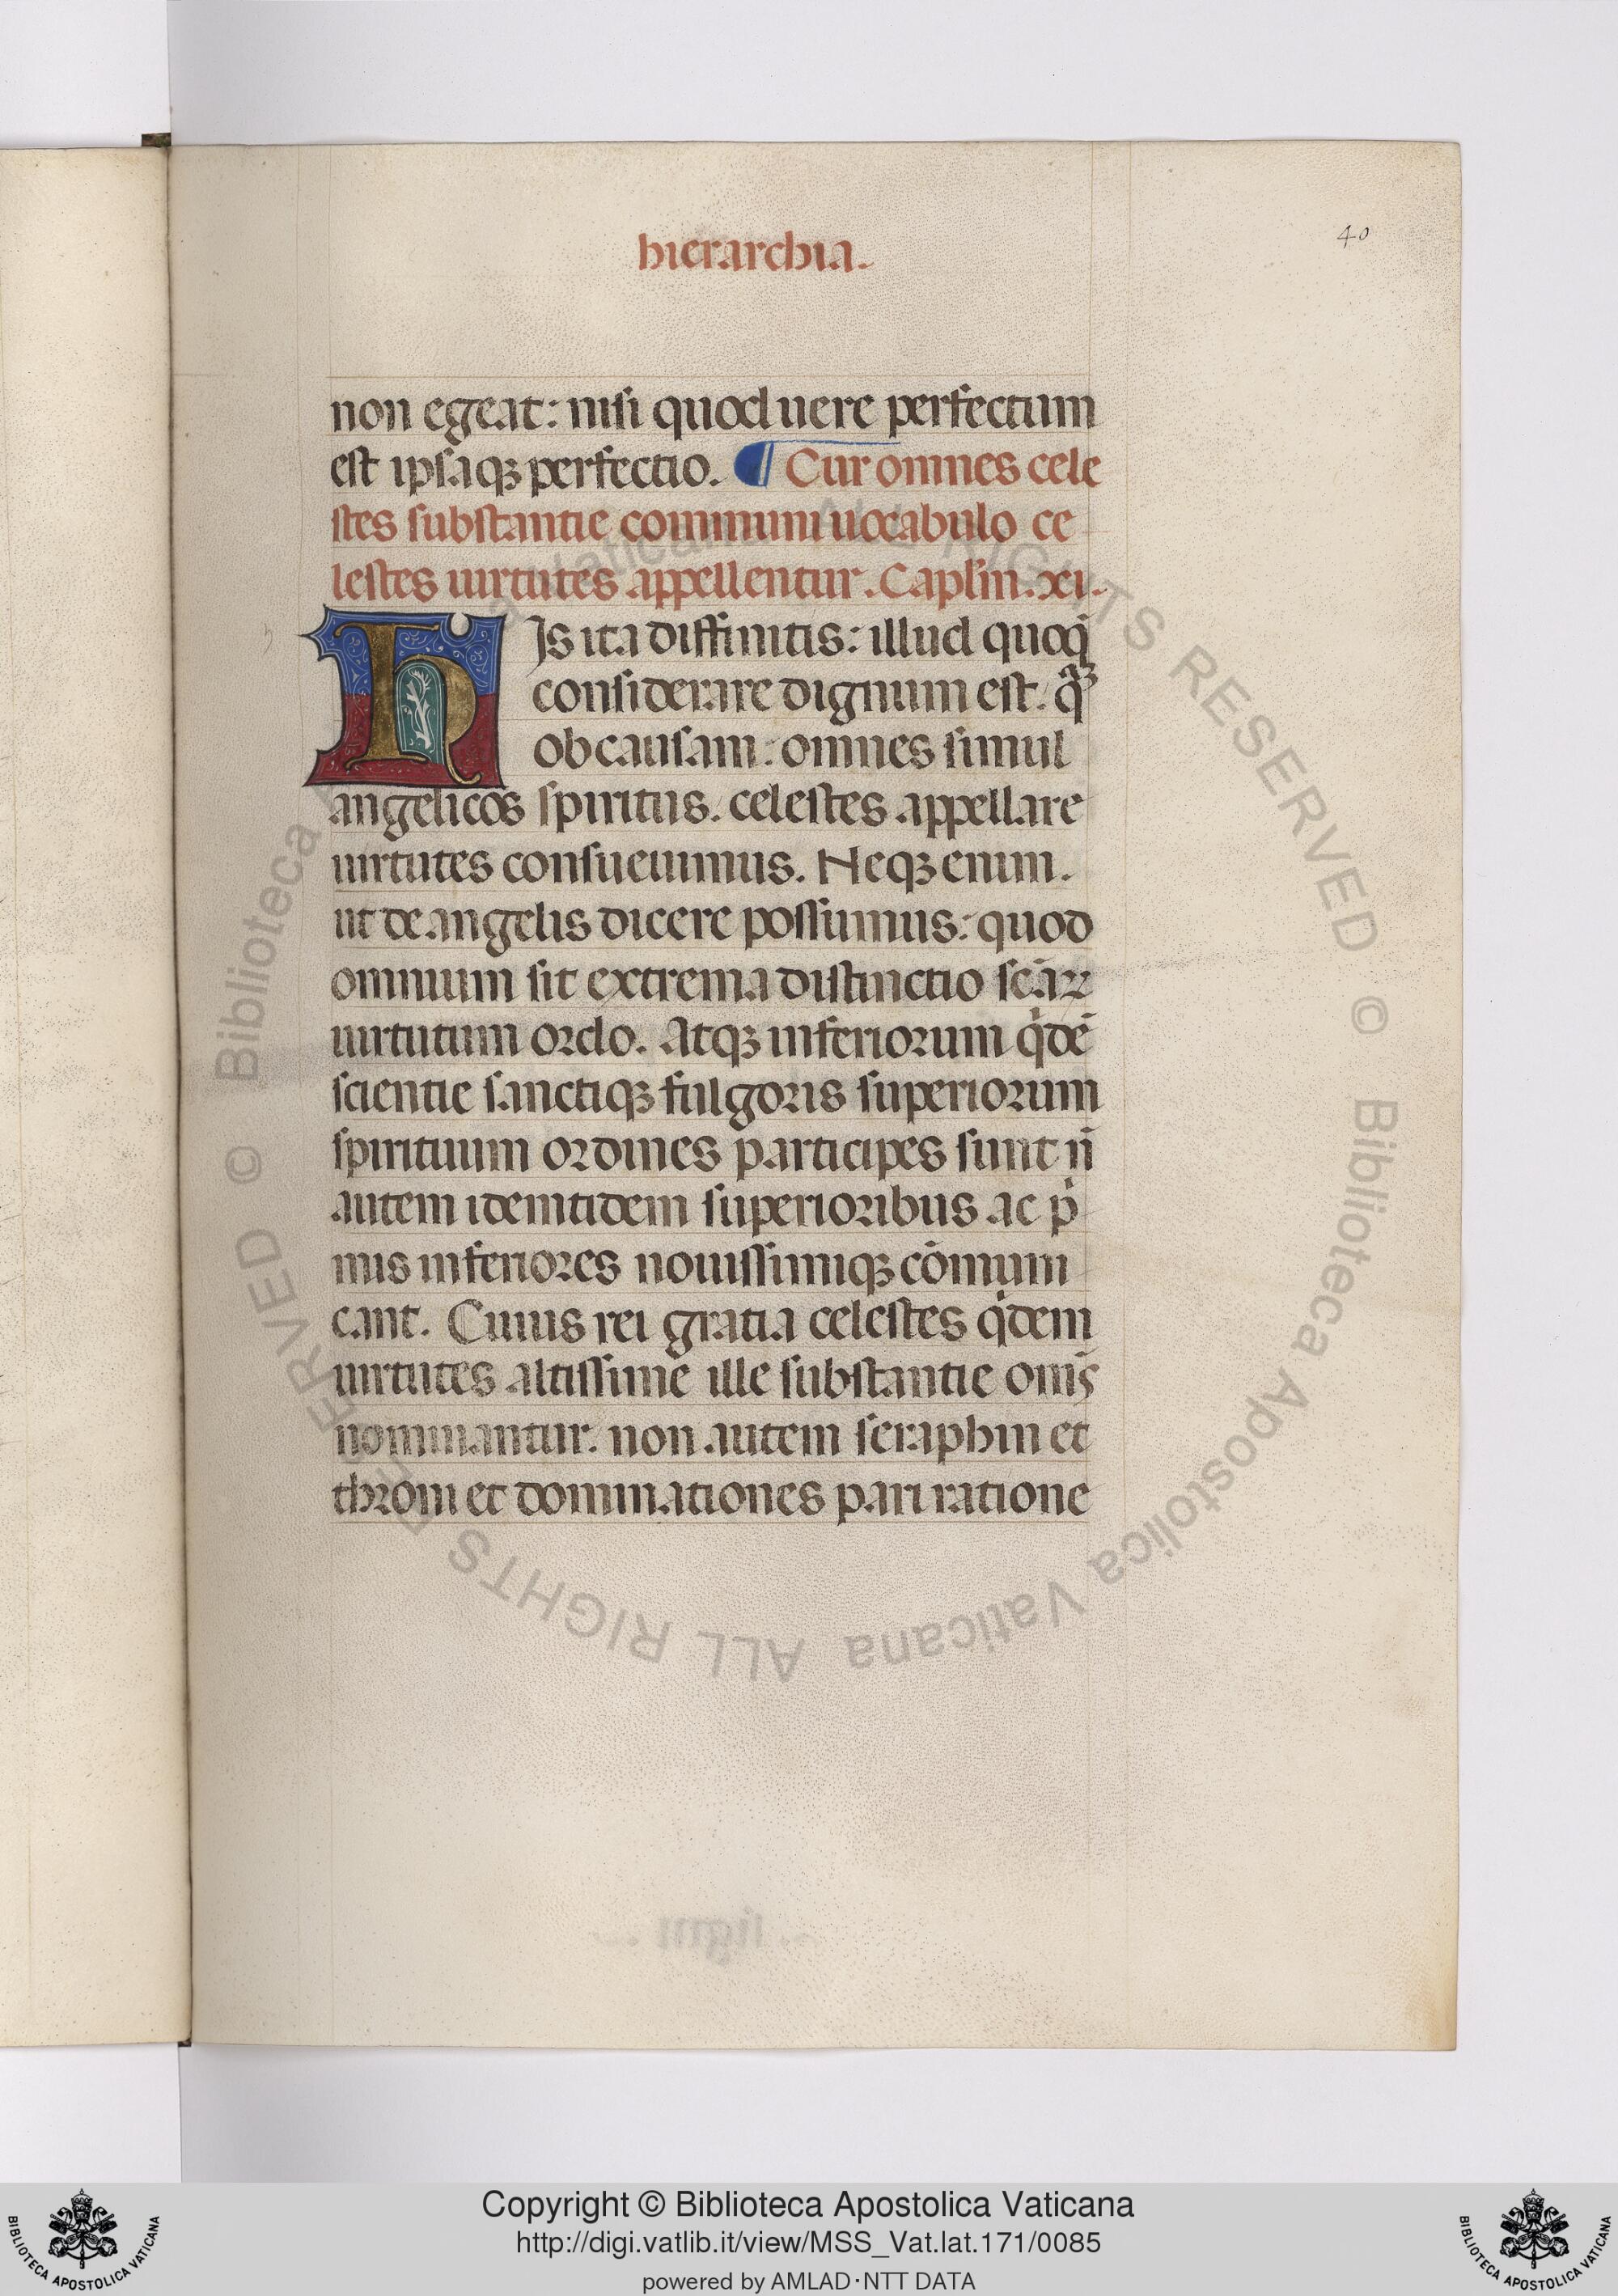 hierarchia.
40
non egeat: nisi quod uere perfectum
est ipsaqꝫ perfectio. ¶ Cur omnes cele
stes substantie communi uocabulo ce
lestes uirtutes appellentur. Capl'm. xi.
h
HIs ita diffinitis: illud quoqꝫ
considerare dignum est. qᷓꝫ
ob causam: omnes simul
angelicos spiritus. celestes appellare
uirtutes consueuimus. Neqꝫ enim.
ut de angelis dicere possumus: quod
omnium sit extrema distinctio scāꝝ
uirtutum ordo. Atqꝫ inferiorum qͥdē
scientie sanctiqꝫ fulgoris superiorum
spirituum ordines participes sunt n̄
autem idemtidem superioribus ac pͥ
mis inferiores nouissimiqꝫ cōmuni
cant. Cuius rei gratia celestes qͥdem
uirtutes altissime ille substantie om̄s
nominantur. non autem seraphin et
throni et dominationes pari ratione
© Biblioteca Apostolica Vaticana ALL RIGHTS RESERVED © Biblioteca Apostolica Vaticana ALL RIGHTS RESERVED
Copyright © Biblioteca Apostolica Vaticana
http://digi.vatlib.it/view/MSS_Vat.lat.171/0085
powered by AMLAD·NTT DATA
BIBLIOTECA APOSTOLICA VATICANA
BIBLIOTECA APOSTOLICA VATICANA